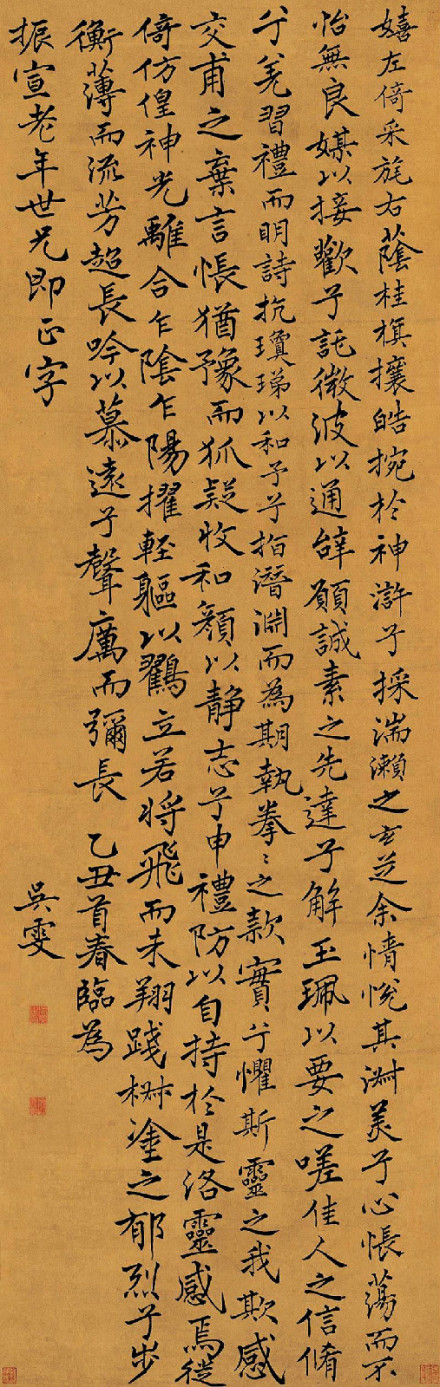 嬉左倚采旄右蔭桂旗攘皓捥於神滸兮採湍瀨之玄芝余情悅其淑美兮心悵蕩而不
怡無良媒以接歡兮託微波以通辭願誠素之先達兮解玉珮以要之嗟佳人之信脩
兮羌習禮而明詩抗瓊珶以和予兮指潛淵而為期執拳〻之款實兮懼斯靈之我欺感
交甫之棄言悵猶豫而狐疑收和顏以静志兮申禮防以自持於是洛靈感焉徙
倚仿偟神光離合乍陰乍陽擢輕軀以鶴立若将飛而未翔踐椒塗之郁烈兮步
衡薄而流芳超長吟以慕遠兮聲厲而彌長 乙丑首春臨為
振宣老年世兄即正字
吳雯